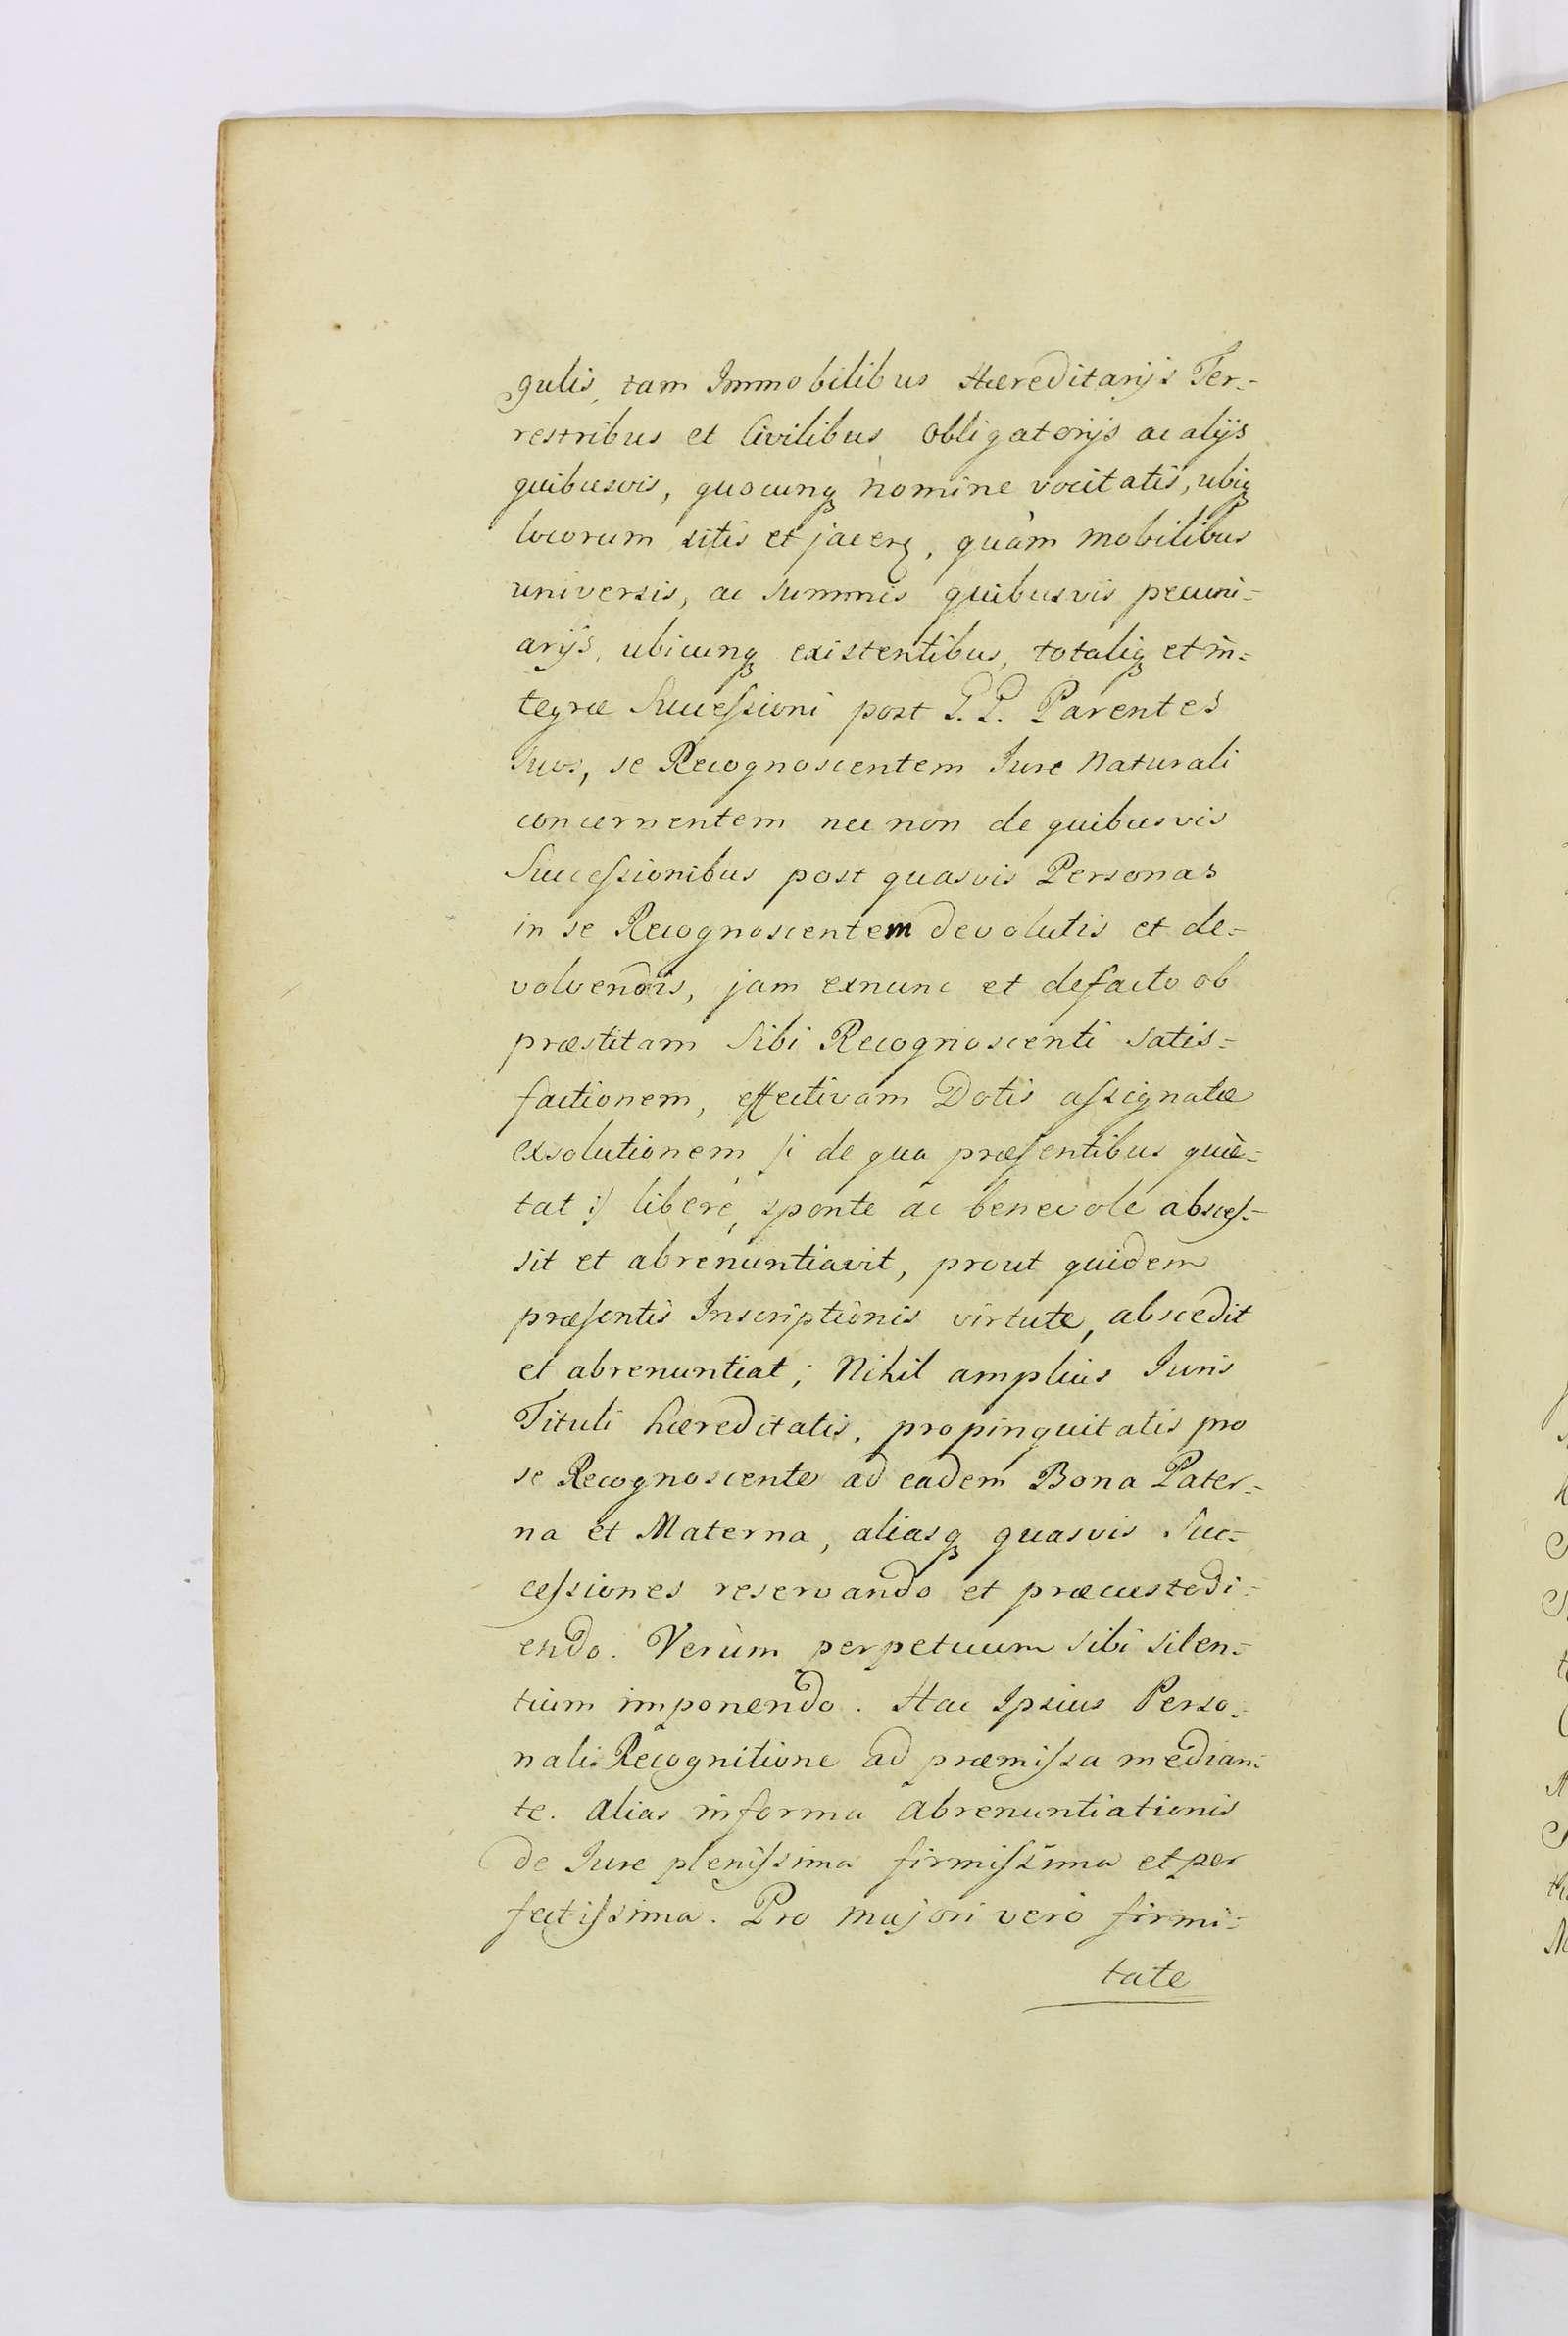 gulis, tam Immobilibus Hæreditarijs Ter=
restribus et Civilibus, obligatorijs ac alijs
quibusvis, quocunqꝫ nomine vocitatis, ubiqꝫ
locorum sitis et jacenꝫ, quàm mobilibus
universis, ac summis quibusvis pecuni=
arijs, ubicunqꝫ existentibus, totaliqꝫ et in=
tegræ Succeſsioni post G. G. Parentes
Suos, se Recognoscentem Iure Naturali
concernentem nec non de quibusvis
Succeſsionibus post quasvis Personas
in se Recognoscentem devolutis et de=
volvendis, jam exnunc et defacto ob
præstitam Sibi Recognoscenti satis=
factionem, effectivam Dotis aſsignatæ
exsolutionem /: de qua præſentibus quie=
tat :/ liberè, sponte ac benevole absceſ=
sit et abrenuntiavit, prout quidem
præſentis Inscriptionis virtute, abscedit
et abrenuntiat; Nihil amplius Iuris
Tituli hæreditatis, propinquitatis pro
se Recognoscente ad eadem Bona Pater=
na et Materna, aliasqꝫ quasvis Suc=
ceſsiones reservando et præcustodi=
endo. Verùm perpetuum sibi silen=
tium imponendo. Hac Ipsius Perso=
nali Recognitione ad præmiſsa median=
te. alias in forma abrenuntiationis
de Iure pleniſsima firmiſsima et per
fectiſsima. Pro majori verò firmi=
tate